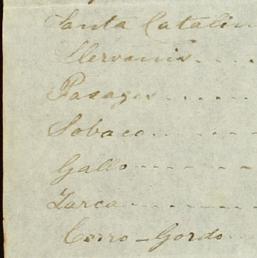 Santa Catalin
Llervania....
Pasages......
Sobaco.......
Gallo........
Zarca........
Cerro-Gordo..